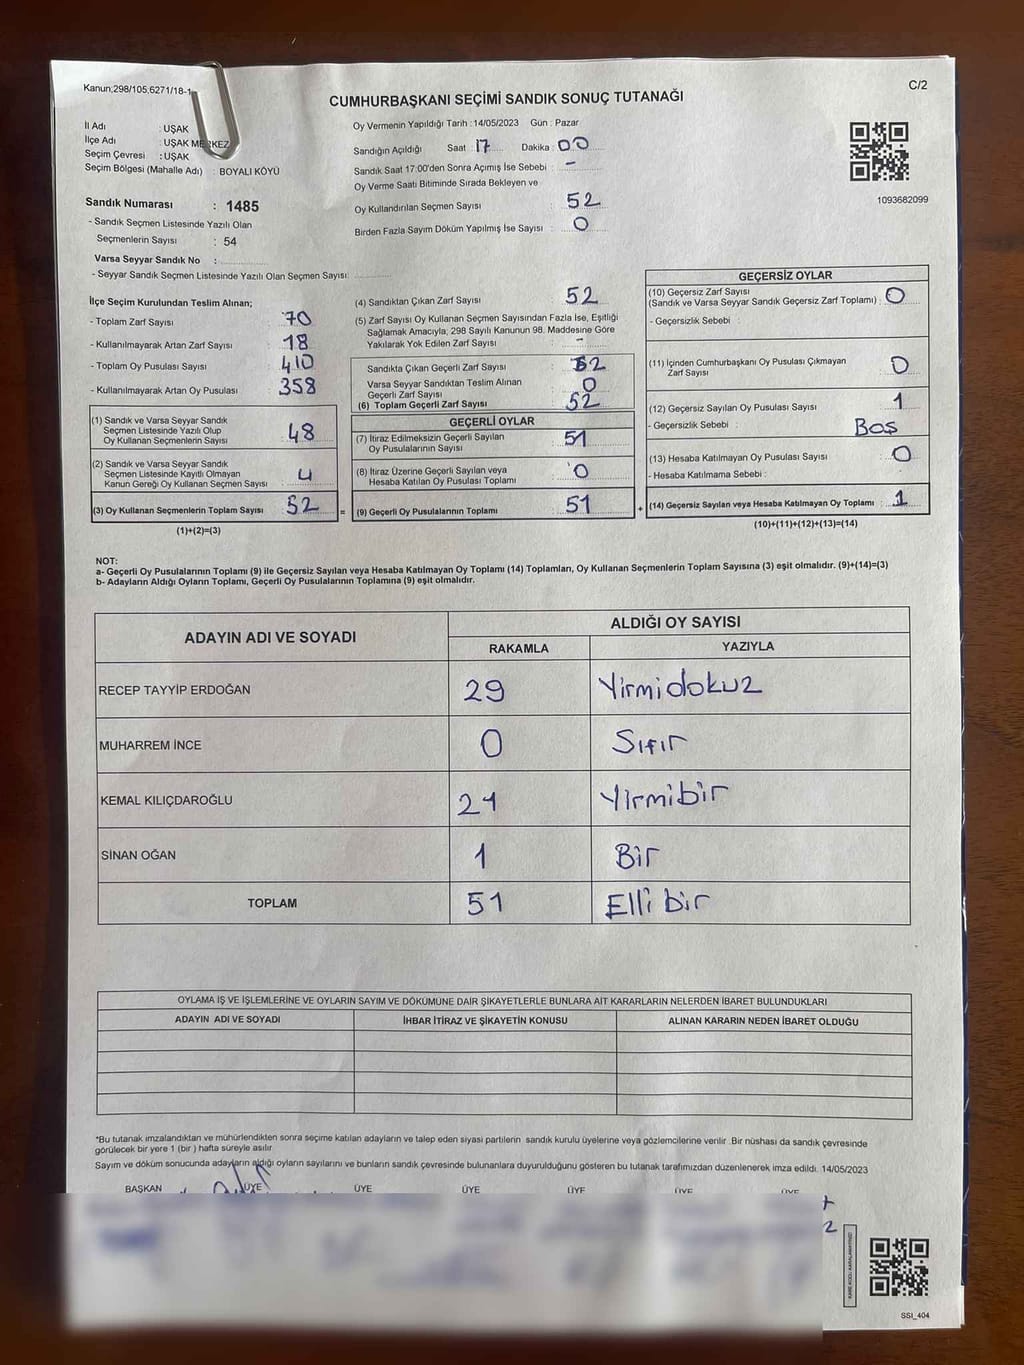 Kanun;298/105,6271/18-1
C/2
CUMHURBAŞKANI SEÇİMİ SANDIK SONUÇ TUTANAĞI
İl Adı : UŞAK
İlçe Adı : UŞAK MERKEZ
Seçim Çevresi : UŞAK
Seçim Bölgesi (Mahalle Adı) : BOYALI KÖYÜ
Sandık Numarası : 1485
- Sandık Seçmen Listesinde Yazılı Olan
Seçmenlerin Sayısı : 54
Varsa Seyyar Sandık No :
- Seyyar Sandık Seçmen Listesinde Yazılı Olan Seçmen Sayısı:
Oy Vermenin Yapıldığı Tarih : 14/05/2023 Gün : Pazar
Sandığın Açıldığı Saat : 17 Dakika : 00
Sandık Saat 17:00'den Sonra Açımış İse Sebebi : -
Oy Verme Saati Bitiminde Sırada Bekleyen ve
Oy Kullandırılan Seçmen Sayısı : 52
Birden Fazla Sayım Döküm Yapılmış İse Sayısı : 0
1093682099
İlçe Seçim Kurulundan Teslim Alınan;
- Toplam Zarf Sayısı : 70
- Kullanılmayarak Artan Zarf Sayısı : 18
- Toplam Oy Pusulası Sayısı : 410
- Kullanılmayarak Artan Oy Pusulası : 358
(1) Sandık ve Varsa Seyyar Sandık
Seçmen Listesinde Yazılı Olup
Oy Kullanan Seçmenlerin Sayısı : 48
(2) Sandık ve Varsa Seyyar Sandık
Seçmen Listesinde Kayıtlı Olmayan
Kanun Gereği Oy Kullanan Seçmen Sayısı : 4
(3) Oy Kullanan Seçmenlerin Toplam Sayısı : 52
(1)+(2)=(3)
=
(4) Sandıktan Çıkan Zarf Sayısı : 52
(5) Zarf Sayısı Oy Kullanan Seçmen Sayısından Fazla İse, Eşitliği
Sağlamak Amacıyla, 298 Sayılı Kanunun 98. Maddesine Göre
Yakılarak Yok Edilen Zarf Sayısı : -
Sandıkta Çıkan Geçerli Zarf Sayısı : 52
Varsa Seyyar Sandıktan Teslim Alınan
Geçerli Zarf Sayısı : 0
(6) Toplam Geçerli Zarf Sayısı : 52
GEÇERLİ OYLAR
(7) İtiraz Edilmeksizin Geçerli Sayılan
Oy Pusulalarının Sayısı : 51
(8) İtiraz Üzerine Geçerli Sayılan veya
Hesaba Katılan Oy Pusulası Toplamı : 0
(9) Geçerli Oy Pusulalarının Toplamı : 51
+
GEÇERSİZ OYLAR
(10) Geçersiz Zarf Sayısı
(Sandık ve Varsa Seyyar Sandık Geçersiz Zarf Toplamı) : 0
- Geçersizlik Sebebi :
(11) İçinden Cumhurbaşkanı Oy Pusulası Çıkmayan
Zarf Sayısı : 0
(12) Geçersiz Sayılan Oy Pusulası Sayısı : 1
- Geçersizlik Sebebi : Boş
(13) Hesaba Katılmayan Oy Pusulası Sayısı : 0
- Hesaba Katılmama Sebebi :
(14) Geçersiz Sayılan veya Hesaba Katılmayan Oy Toplamı : 1
(10)+(11)+(12)+(13)=(14)
NOT:
a- Geçerli Oy Pusulalarının Toplamı (9) ile Geçersiz Sayılan veya Hesaba Katılmayan Oy Toplamı (14) Toplamları, Oy Kullanan Seçmenlerin Toplam Sayısına (3) eşit olmalıdır. (9)+(14)=(3)
b- Adayların Aldığı Oyların Toplamı, Geçerli Oy Pusulalarının Toplamına (9) eşit olmalıdır.
ADAYIN ADI VE SOYADI
ALDIĞI OY SAYISI
RAKAMLA YAZIYLA
RECEP TAYYİP ERDOĞAN 29 Yirmidokuz
MUHARREM İNCE 0 Sıfır
KEMAL KILIÇDAROĞLU 21 Yirmibir
SİNAN OĞAN 1 Bir
TOPLAM 51 Elli bir
OYLAMA İŞ VE İŞLEMLERİNE VE OYLARIN SAYIM VE DÖKÜMÜNE DAİR ŞİKAYETLERLE BUNLARA AİT KARARLARIN NELERDEN İBARET BULUNDUKLARI
ADAYIN ADI VE SOYADI İHBAR İTİRAZ VE ŞİKAYETİN KONUSU ALINAN KARARIN NEDEN İBARET OLDUĞU
*Bu tutanak imzalandıktan ve mühürlendikten sonra seçime katılan adayların ve talep eden siyasi partilerin sandık kurulu üyelerine veya gözlemcilerine verilir .Bir nüshası da sandık çevresinde
görülecek bir yere 1 (bir ) hafta süreyle asılır.
Sayım ve döküm sonucunda adayların aldığı oyların sayılarını ve bunların sandık çevresinde bulunanlara duyurulduğunu gösteren bu tutanak tarafımızdan düzenlenerek imza edildi. 14/05/2023
BAŞKAN ÜYE ÜYE ÜYE ÜYE ÜYE ÜYE
SSI_404